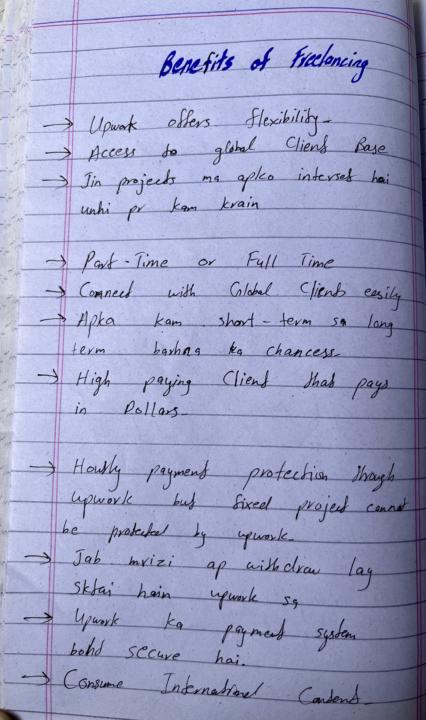 Benefits of Freelancing
→ Upwork offers flexibility-
→ Access to global Client Base
→ Jin projects ma apko interset hai
unhi pr kam krain
→ Part-Time or Full Time
→ Connect with Global Clients easily
→ Apka kam short-term sa long
term barhna ka chancess-
→ High paying Client that pays
in Dollars-
→ Hourly payment protection through
upwork but fixed project cannot
be protected by upwork-
→ Jab mrizi ap withdraw lay
sktai hain upwork sa
→ Upwork ka payment system
boht secure hai.
→ Consume International Content-